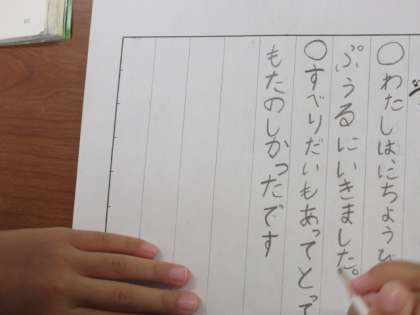 〇わたしは、にちようび
ぷうるにいきました。
〇すべりだいもあってとって
もたのしかったです